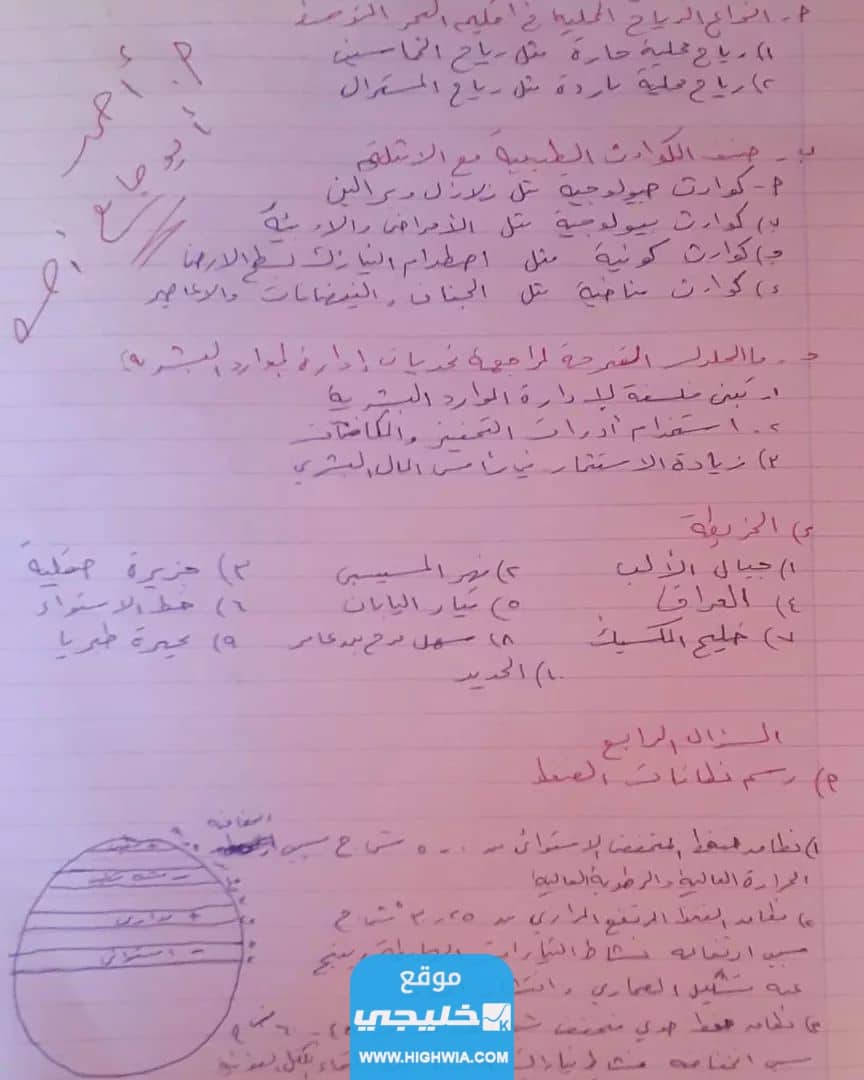 ٢- انواع الرياح المحلية في اقليم البحر المتوسط
١) رياح محلية حارة مثل رياح الخماسين
٢) رياح محلية باردة مثل رياح المسترال
م. أحمد
أبو جامع
ب- صنف الكوارث الطبيعية مع الامثلة
٢- كوارث جيولوجية مثل زلازل وبراكين
ب) كوارث بيولوجية مثل الأمراض والاوبئة
ج) كوارث كونية مثل اصطدام النيازك بسطح الارض
د) كوارث مناخية مثل الجفاف والفيضانات والاعاصير
ج- ما الحلول المقترحة لمواجهة تحديات إدارة الموارد البشرية
١- تبني فلسفة لإدارة الموارد البشرية
٢- استخدام أدوات التحفيز والمكافئات
٣) زيادة الاستثمار في رأس المال البشري
د) الخريطة
١) جبال الألب ٢) نهر المسيسبي ٣) جزيرة صقلية
٤) العراق ٥) تيار اليابان ٦) خط الاستواء
٧) خليج المكسيك ٨) سهل مرج بن عامر ٩) بحيرة طبريا
١٠) الحديد
السؤال الرابع
٢) رسم نطاقات الضغط
١) نطاق ضغط المنخفض الاستوائي من ٠ - ٥ ش ج سبب
الحرارة العالية والرطوبة العالية
٢) نطاق الضغط المرتفع المداري من ٢٥ - ٣٠ ش ج
سبب ارتفاعه نشاط التيارات الهابطة وينتج
عنه تشكيل الصحاري
٣) نطاق ضغط دون
سبب انخفاضه نشاط
+ مداري
- استوائي
موقع
خليجي
WWW.HIGHWIA.COM